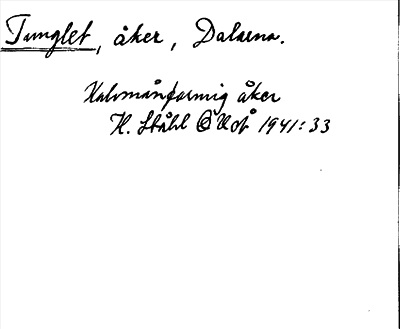 Tunglet, åker, Dalarna.
Halvmånformig åker
H. Ståhl 1941:33